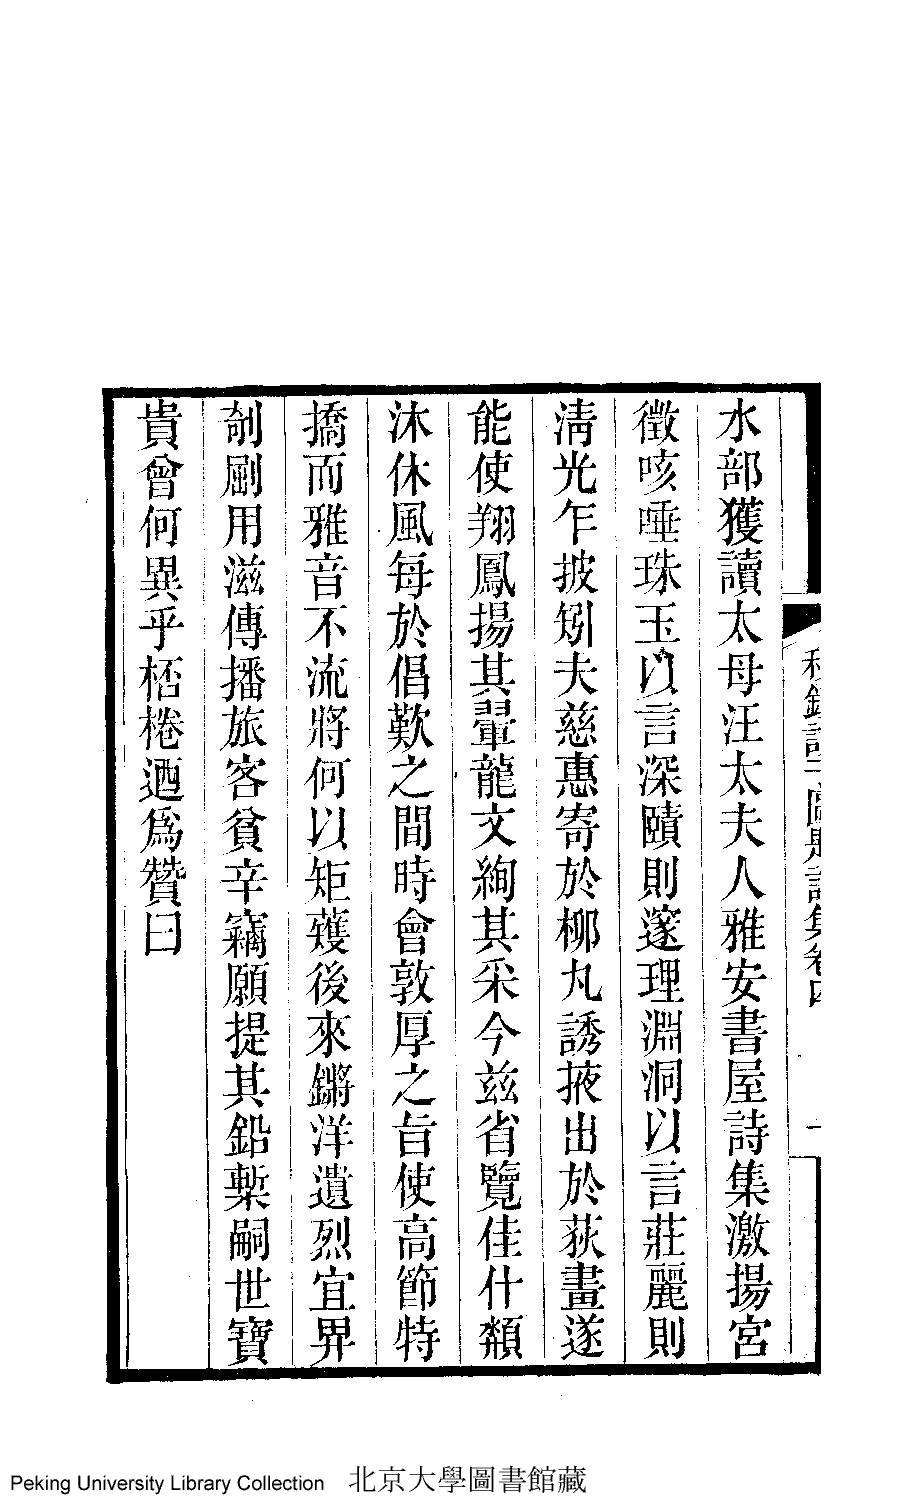 水部獲讀太母汪太夫人雅安書屋詩集激揚宮
徵咳唾珠玉以言深賾則邃理淵洞以言莊麗則
淸光乍披矧夫慈惠寄於柳丸誘掖出於荻畫遂
能使翔鳳揚其翬龍文絢其釆今兹省覽佳什纇
沐休風每於倡歎之間時會敦厚之旨使高節特
撟而雅音不流將何以矩矱後來鏘洋遺烈宜畀
剞劂用滋傳播旅客貧辛竊願提其鉛槧嗣世寶
貴曾何異乎桮棬迺爲贊曰
課子圖題詩集卷四
一
Peking University Library Collection 北京大學圖書館藏